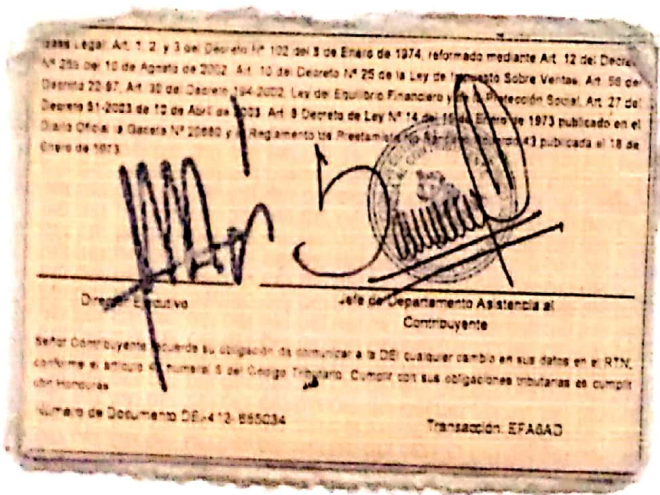 Base Legal: Art. 1, 2, y 3 del Decreto Nº 102 del 8 de Enero de 1974, reformado mediante Art. 12 del Decreto
Nº 255 del 10 de Agosto de 2002. Art. 10 del Decreto Nº 25 de la Ley de Impuesto Sobre Ventas, Art. 56 del
Decreto 22-97, Art. 30 del Decreto 194-2002, Ley del Equilibrio Financiero y la Protección Social, Art. 27 del
Decreto 51-2003 de 10 de Abril de 2003. Art. 8 Decreto de Ley Nº 14 del Enero de 1973 publicado en el
Diario Oficial la Gaceta Nº 20680 y el Reglamento de Prestamistas No 43 publicada el 18 de
Enero de 1973.
Director Ejecutivo
Jefe de Departamento Asistencia al
Contribuyente
Señor Contribuyente recuerde su obligación de comunicar a la DEI cualquier cambio en sus datos en el RTN,
conforme el artículo numeral 5 del Código Tributario. Cumplir con sus obligaciones tributarias es cumplir
con Honduras
Número de Documento DEI-412-
Transacción: EFA6AD